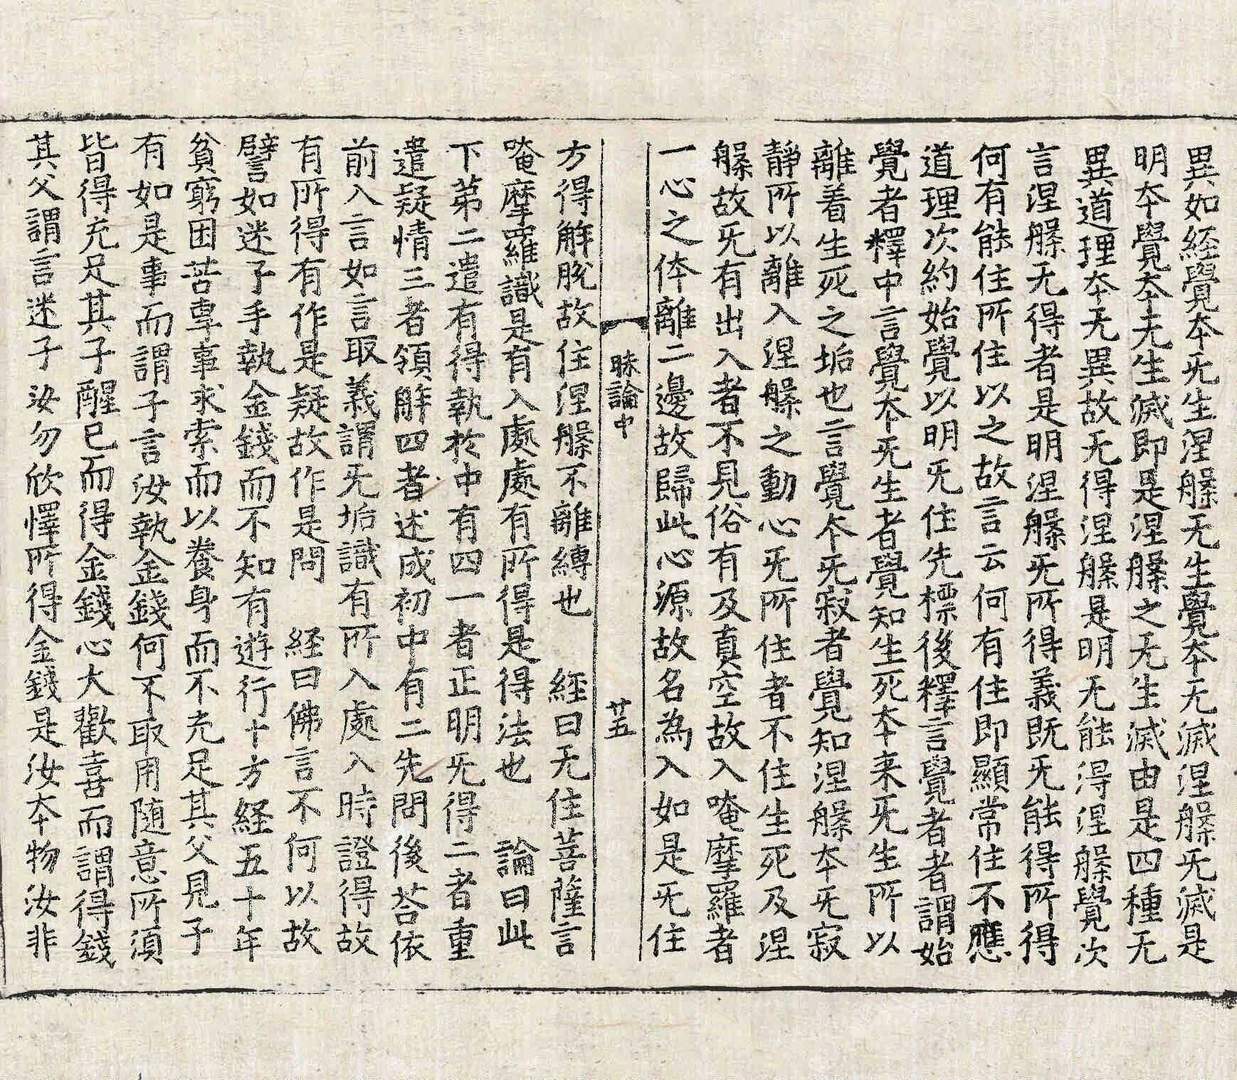 異如経覺本旡生涅槃旡生覺本旡滅涅槃旡滅是
明本覺本旡生滅即是涅槃之旡生滅由是四種旡
異道理本旡異故旡得涅槃是明旡能得涅槃覺次
言涅槃旡得者是明涅槃旡所得義既旡能得所得
何有能住所住以之故言云何有住即顯常住不應
道理次約始覺以明旡住先標後釋言覺者者謂始
覺者釋中言覺本旡生者覺知生死本来旡生所以
離着生死之垢也言覺本旡寂者覺知涅槃本旡寂
静所以離入涅槃之動心旡所住者不住生死及涅
槃故旡有出入者不見俗有及真空故入唵摩羅者
一心之体離二邊故歸此心源故名為入如是旡住
論中
廿五
方得解脱故住涅槃不離縛也 経曰旡住菩薩言
唵摩羅識是有入處處有所得是得法也 論曰此
下第二遣有得執於中有四一者正明旡得二者重
遣疑情三者領解四者述成初中有二先問後荅依
前入言如言取義謂旡垢識有所入處入時證得故
有所得有作是疑故作是問 経曰佛言不何以故
譬如迷子手執金錢而不知有遊行十方経五十年
貧窮困苦專事求索而以養身而不充足其父見子
有如是事而謂子言汝執金錢何不取用随意所湏
皆得充足其子醒已而得金錢心大歡喜而謂得錢
其父謂言迷子汝勿欣懌所得金錢是汝本物汝非